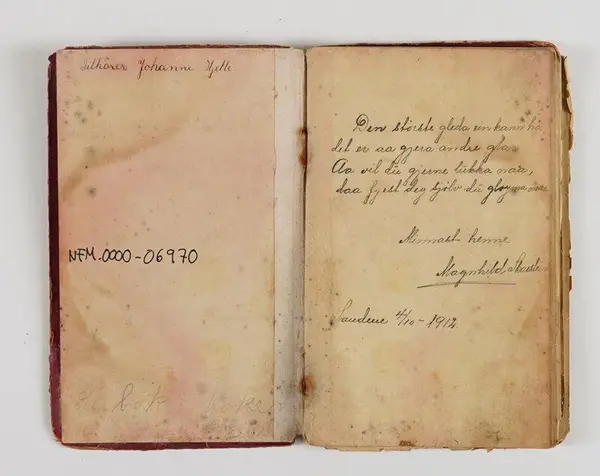 Tilhörer Johanne Hjelle
NFM.0000-06970
bok
Den störste gleda ein kann ha
det er aa gjera andre glad
Aa vil dü gjerne lükka naa,
daa fyest deg sjölv dü gløyma
Minnast henne
Magnhild
Saudene 4/10 - 1912